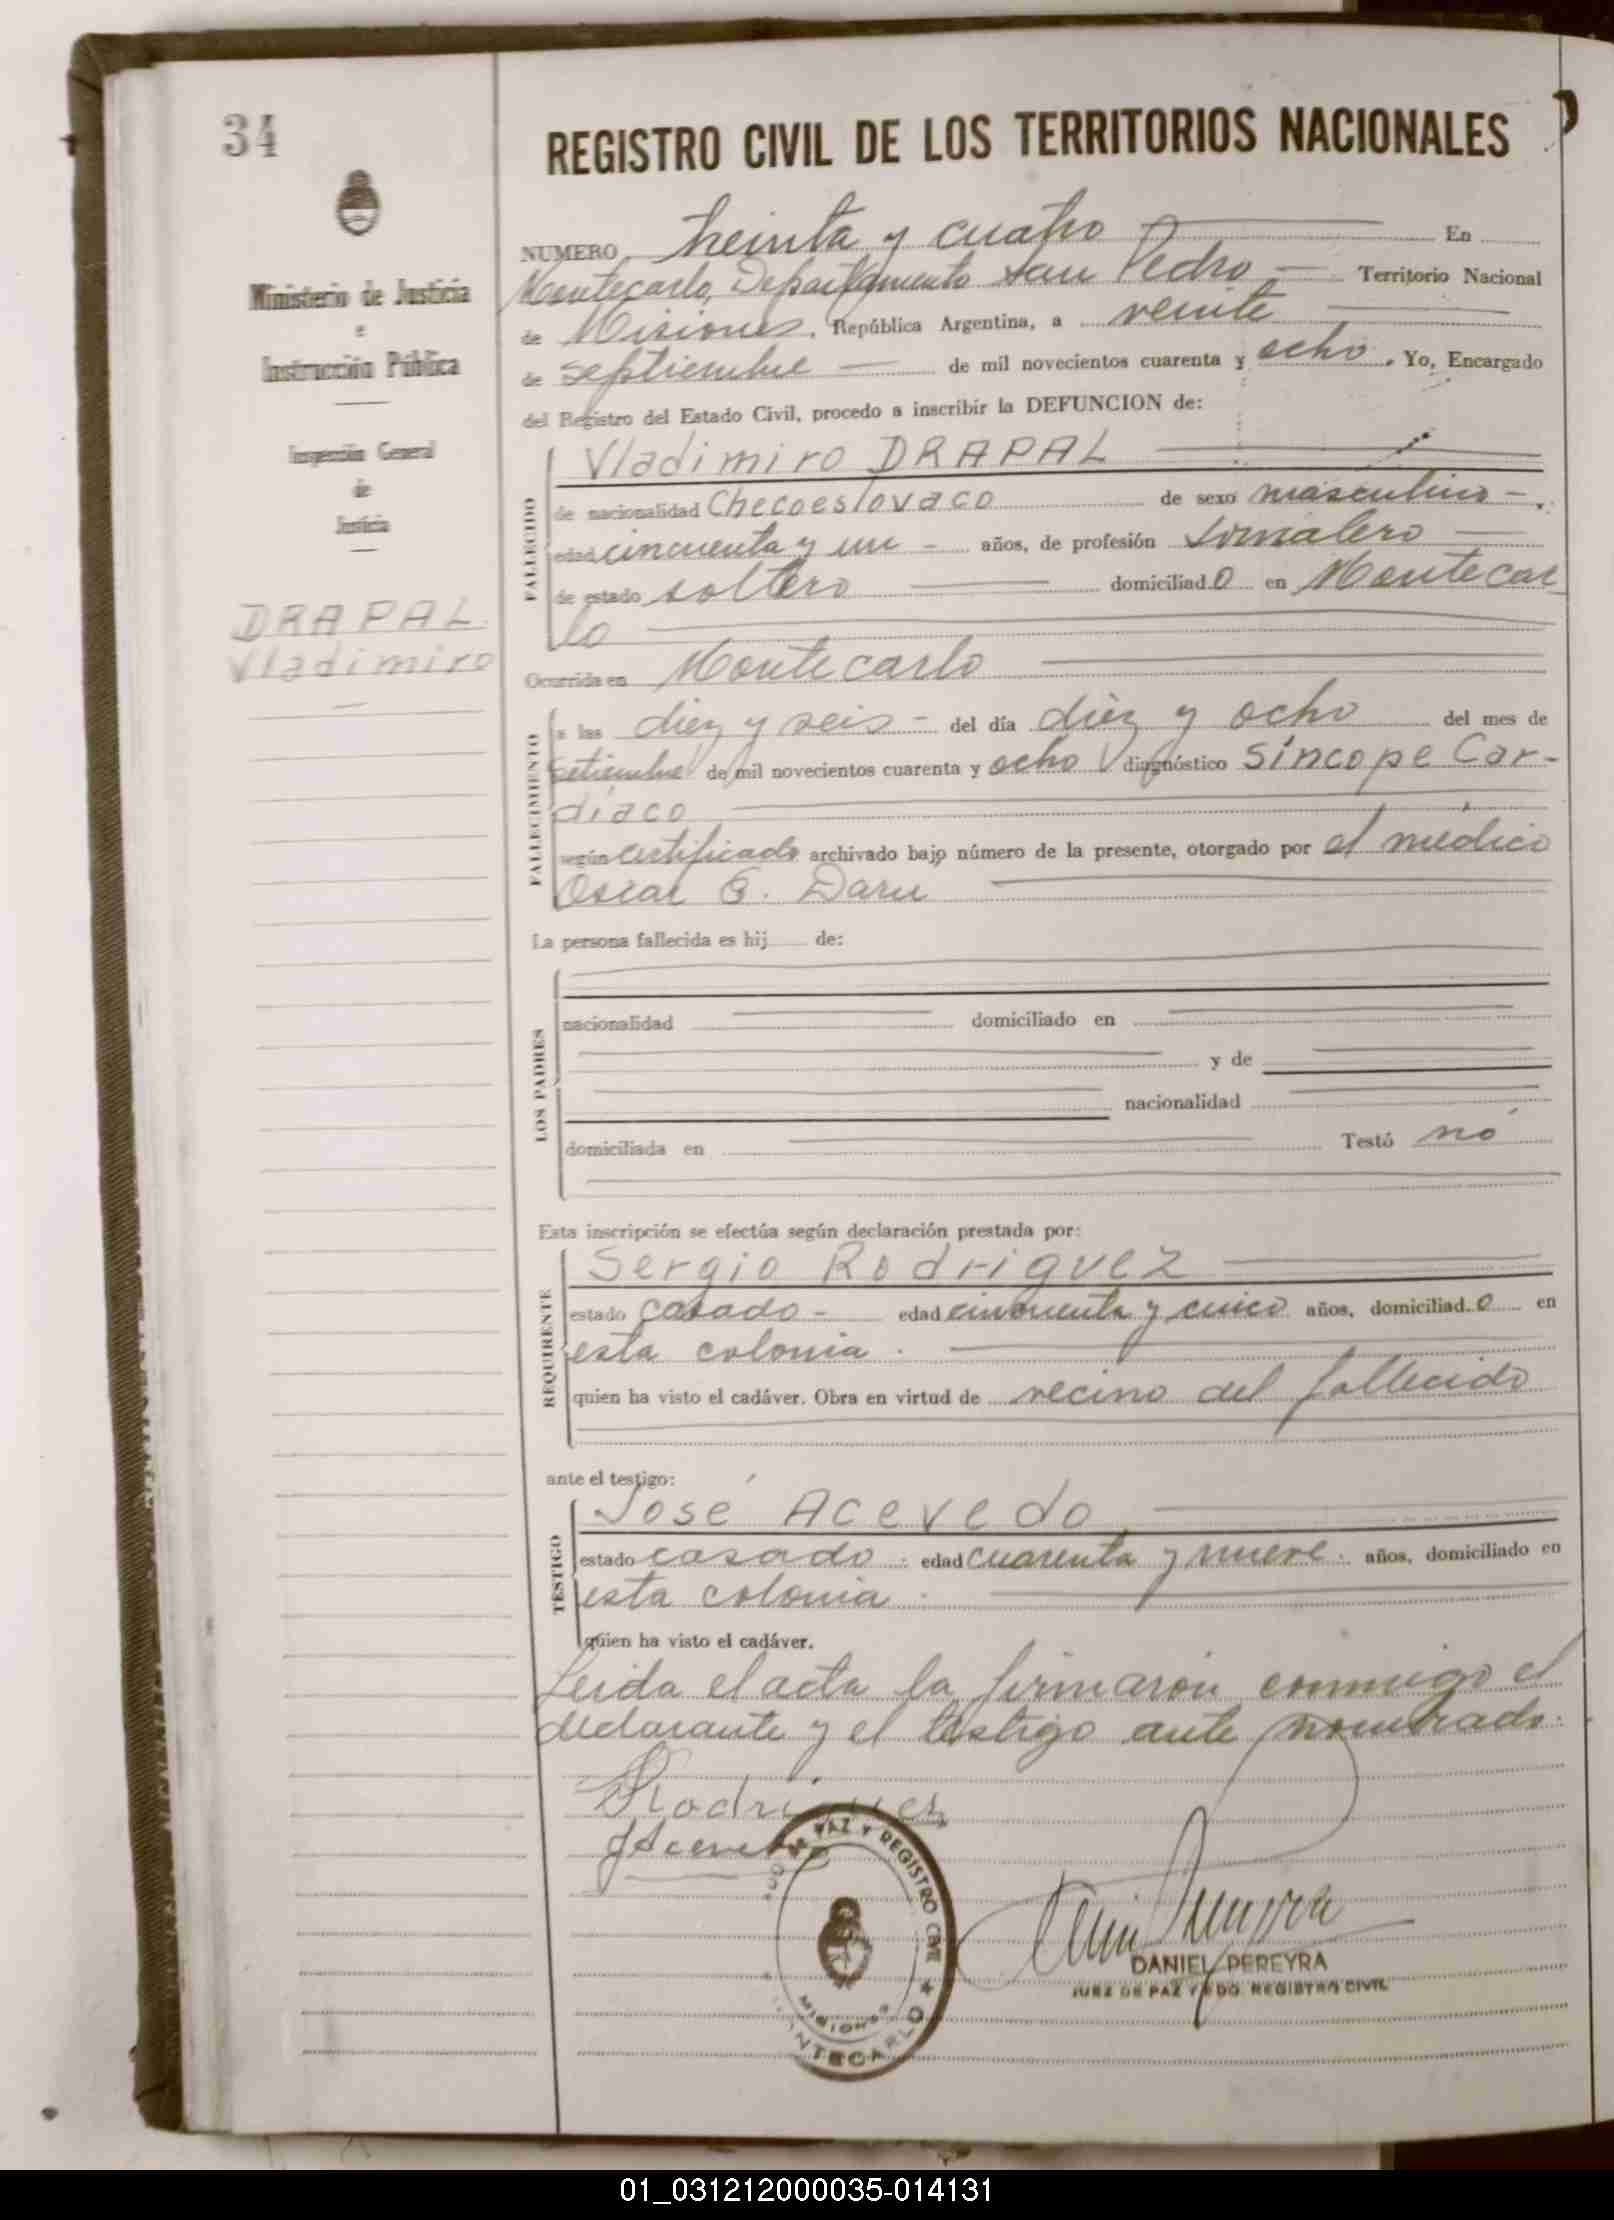 34
REGISTRO CIVIL DE LOS TERRITORIOS NACIONALES
Ministerio de Justicia
e
Instrucción Pública
Inspección General
de
Justicia
DRAPAL
Vladimiro
NUMERO treinta y cuatro En
Montecarlo, Departamento San Pedro Territorio Nacional
de Misiones, República Argentina, a veinte
de septiembre de mil novecientos cuarenta y ocho. Yo, Encargado
del Registro del Estado Civil, procedo a inscribir la DEFUNCION de:
FALLECIDO
Vladimiro DRAPAL
de nacionalidad Checoeslovaco de sexo masculino -.
edad cincuenta y un - años, de profesión Jornalero
de estado soltero domiciliado en Montecar
lo
Ocurrida en Montecarlo
FALLECIMIENTO
a las diez y seis - del día diez y ocho del mes de
setiembre de mil novecientos cuarenta y ocho diagnóstico Síncope Car-
díaco
según certificado archivado bajo número de la presente, otorgado por el médico
Oscar G. Daru
La persona fallecida es hij de:
LOS PADRES
nacionalidad domiciliado en
y de
nacionalidad
domiciliada en Testó no
Esta inscripción se efectúa según declaración prestada por:
REQUIRENTE
Sergio Rodriguez
estado casado - edad cincuenta y cinco años, domiciliado en
esta colonia.
quien ha visto el cadáver. Obra en virtud de vecino del fallecido
ante el testigo:
TESTIGO
José Acevedo
estado casado. edad cuarenta y nueve. años, domiciliado en
esta colonia.
quien ha visto el cadáver.
Leida el acta la firmaron conmigo el
declarante y el testigo ante nombrado.
SRodriguez
JAcevedo
DE PAZ Y REGISTRO CIVIL ★
MISIONES
NTECARLO
DANIEL PEREYRA
JUEZ DE PAZ Y EDO. REGISTRO CIVIL
01_031212000035-014131